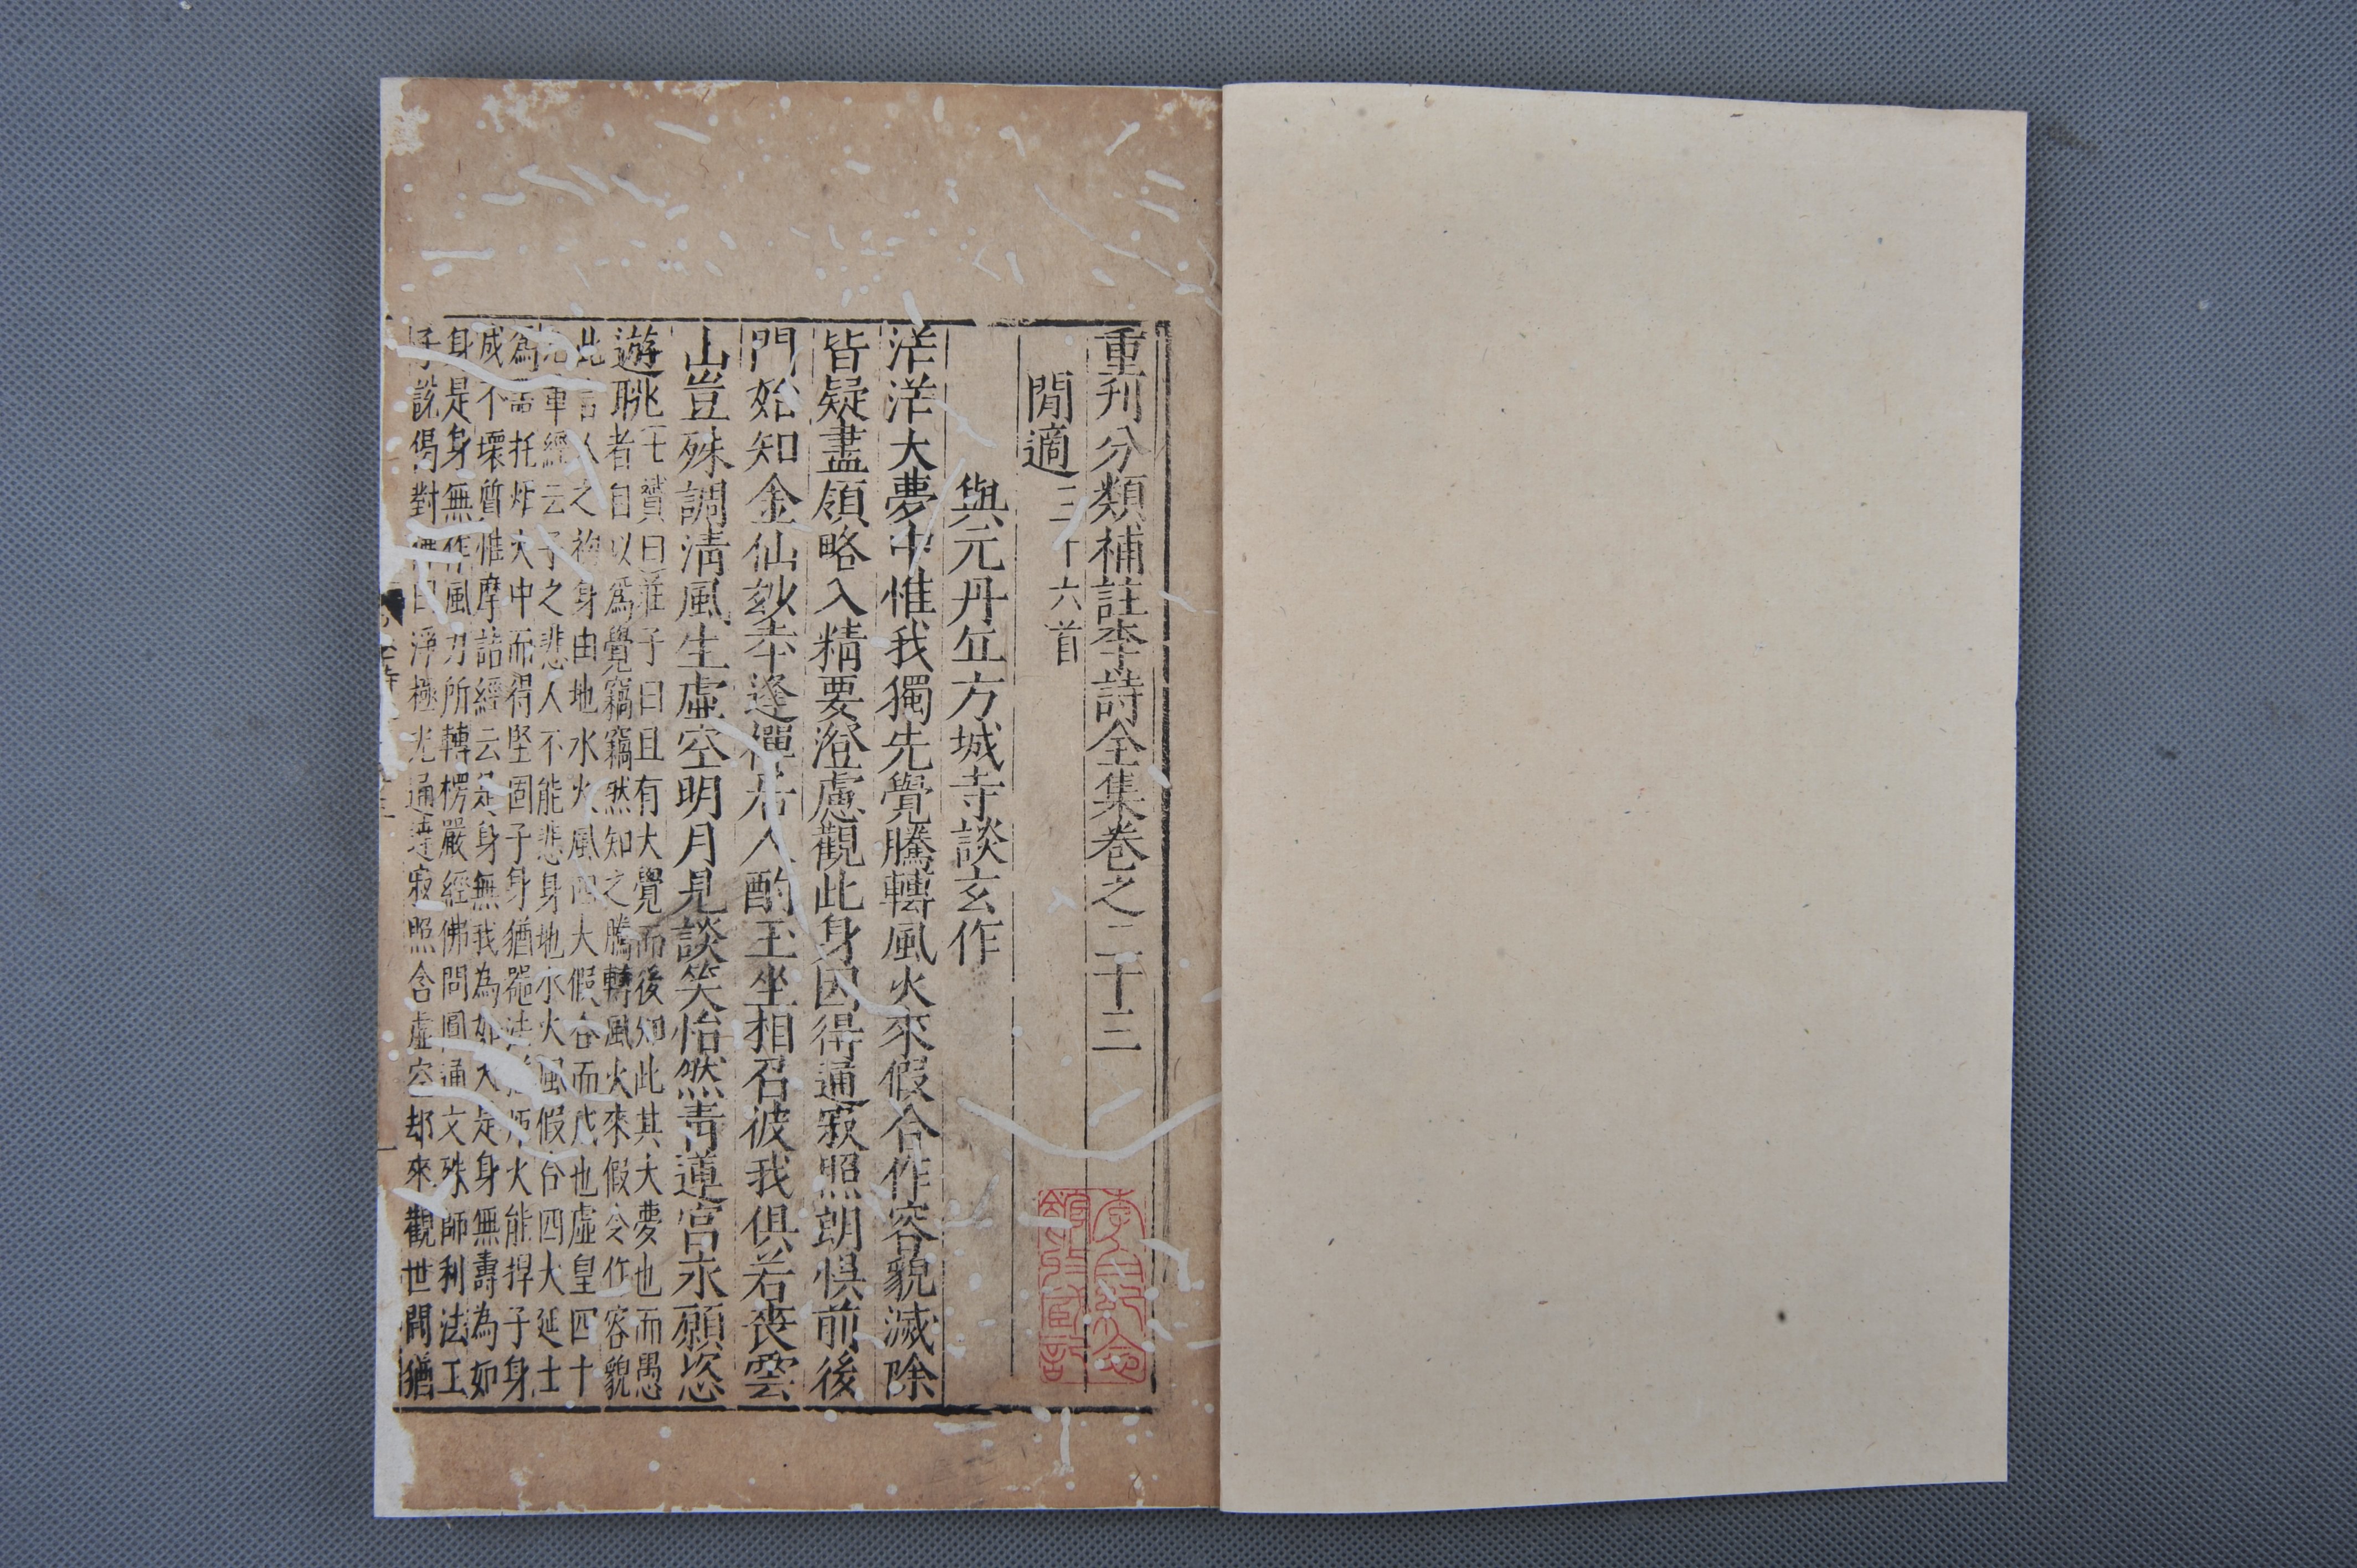 重刊分類補註李詩全集卷之二十三
閒適三十六首
與元丹丘方城寺談玄作
茫茫大夢中惟我獨先覺騰轉風火來假合作容貌滅除
皆疑盡領略入精要澄慮觀此身因得通寂照朗悟前後
門始知金仙妙幸逢禪居人酌玉坐相召彼我俱若喪雲
山豈殊調清風生虛空明月見談笑怡然青蓮宮永願恣
遊眺
士贇曰莊子曰且有大覺而後知此其大夢也而愚
者自以爲覺竊竊然知之騰轉風火來假合作容貌
此言人之初身由地水火風四大假合而成也虛皇四十
章經云子之悲人不能悲身地水火風假合四大延士
爲 托炉火中而得堅固子身猶器 火能捍子身
成不壞質惟摩詰經云是身無我為如火是身無壽為如
身是身無作風力所轉楞嚴經佛問圓通文殊師利法王
子說偈對佛曰淨極光通達寂照含虛空却來觀世間猶